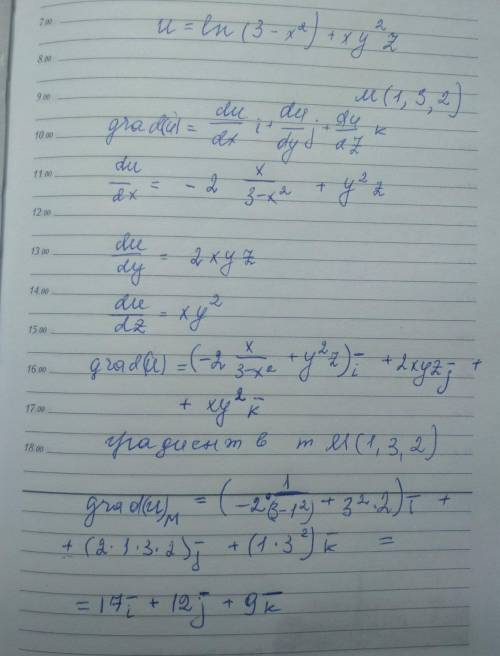 7.00
u = ln(3 - x²) + xy²z
8.00
9.00 M(1, 3, 2)
10.00 grad(u) = du/dx i + du/dy j + du/dz k
11.00 du/dx = -2 x/(3-x²) + y²z
12.00
13.00 du/dy = 2xyz
14.00
du/dz = xy²
15.00
16.00 grad(u) = (-2 x/(3-x²) + y²z) i̅ + 2xyz j̅ +
17.00 + xy² k̅
18.00 градиент в т M(1, 3, 2)
grad(u)M = (1/(-2(3-1²)) + 3²·2) i̅ +
+ (2·1·3·2) j̅ + (1·3²) k̅ =
= 17i̅ + 12j̅ + 9k̅